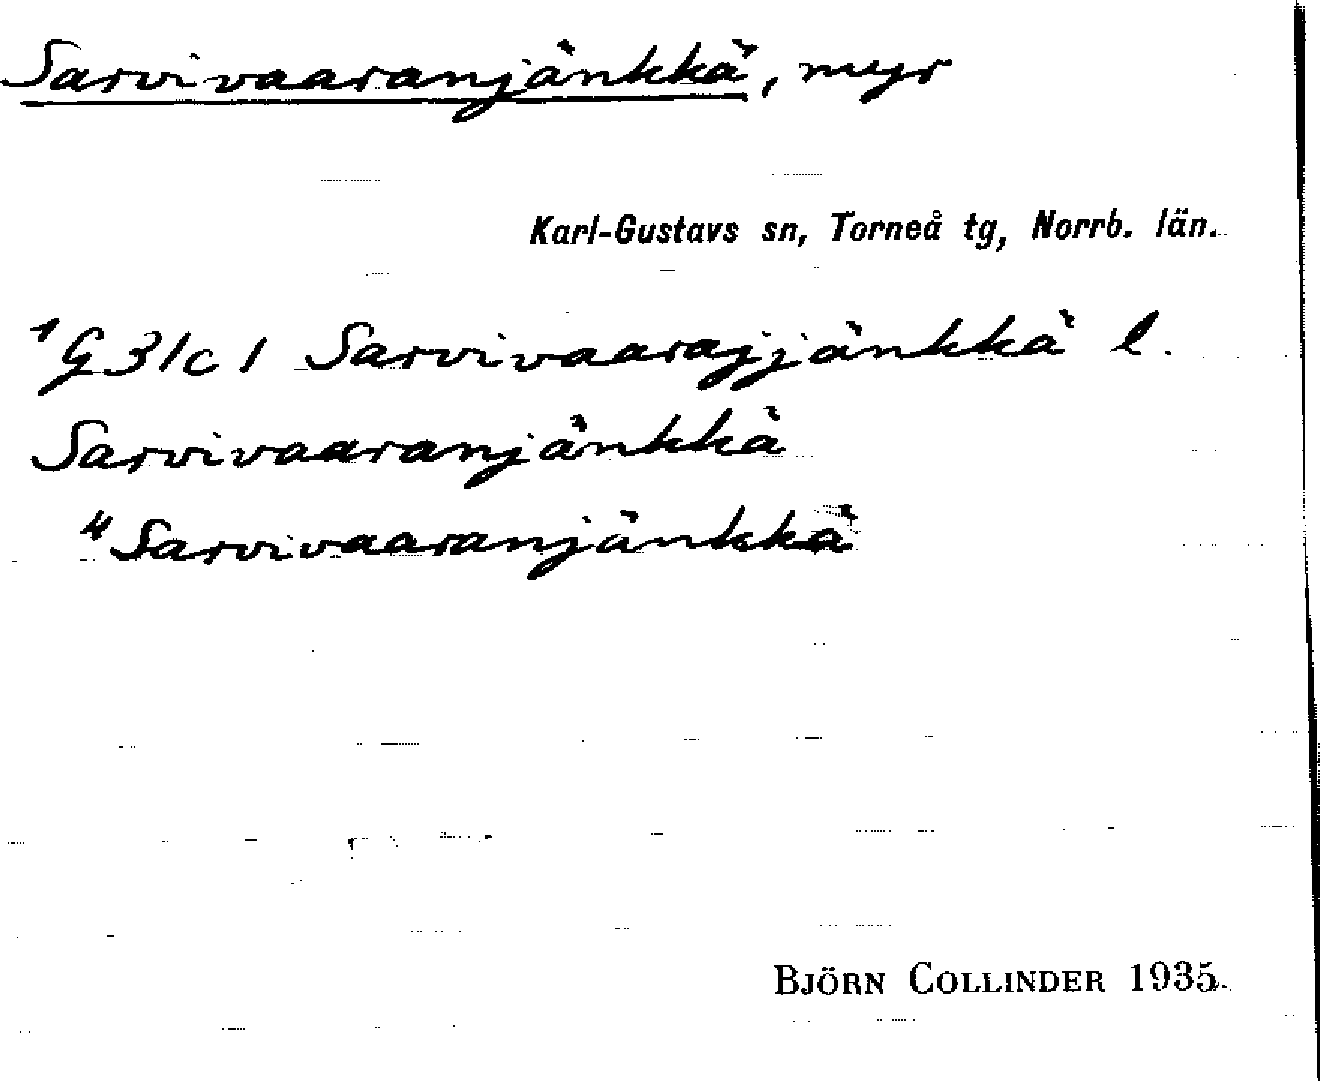 Sarvivaaranjänkkä, myr
Karl-Gustavs sn, Torneå tg, Norrb. län.
¹G 31c1 Sarvivaarajjänkkä l.
Sarvivaaranjänkkä
⁴Sarvivaaranjänkkä
BJÖRN COLLINDER 1935.